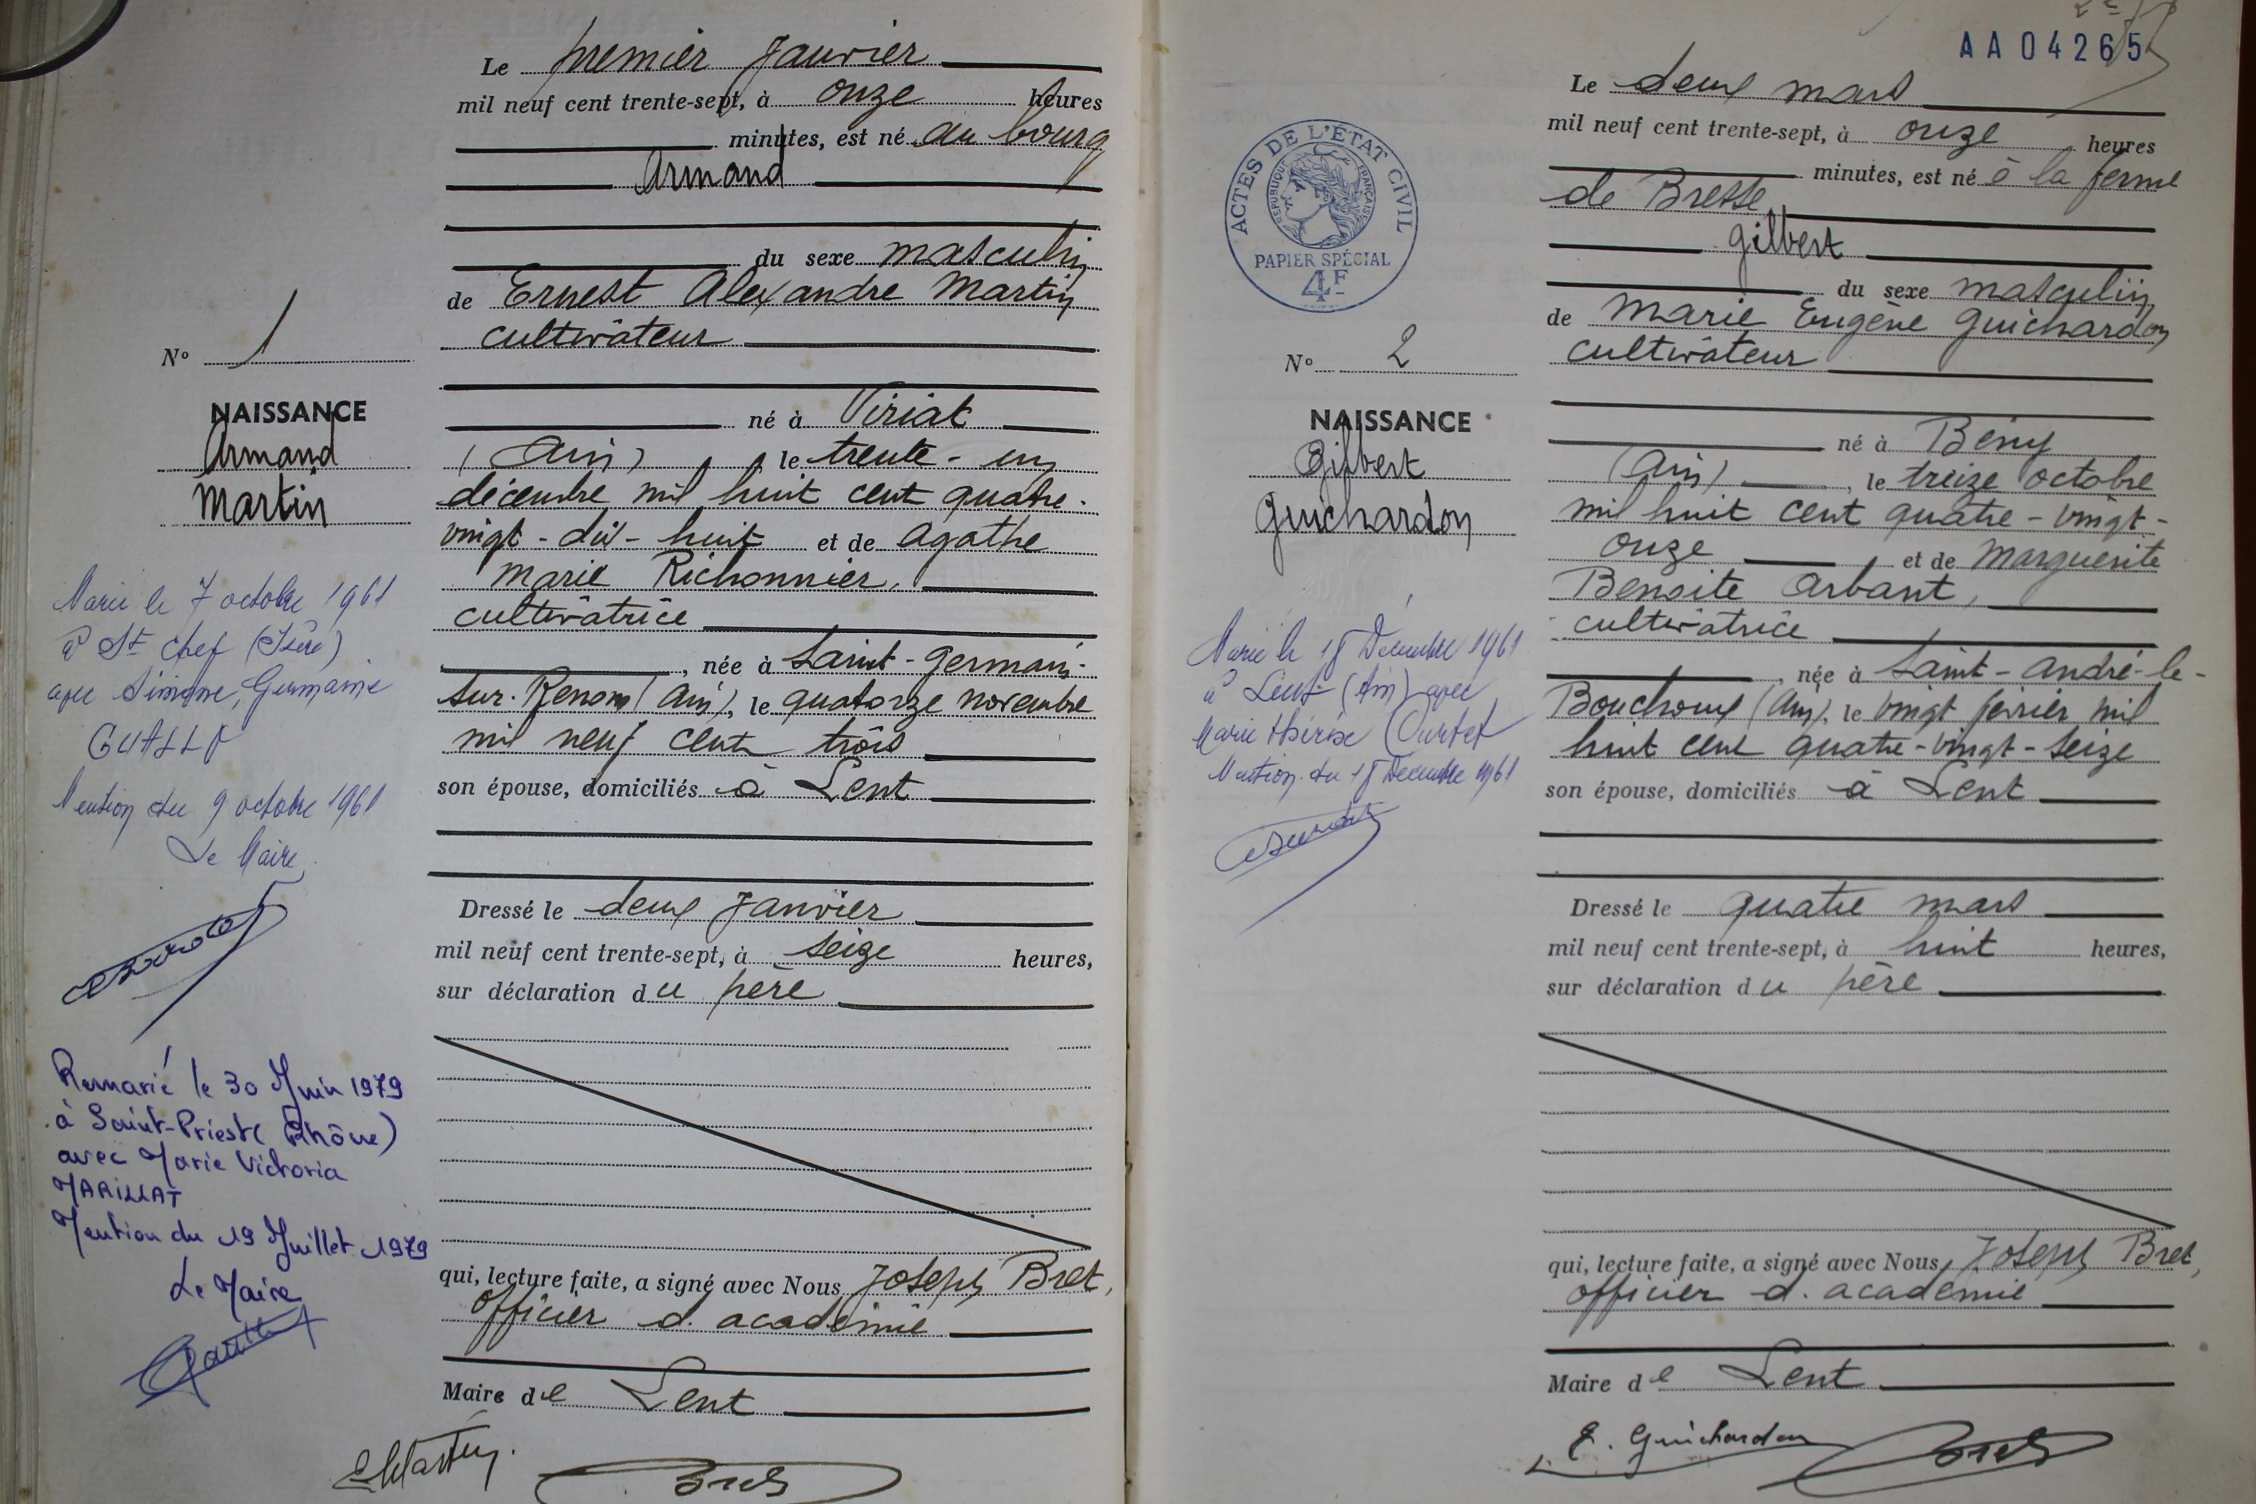 Le premier Janvier
mil neuf cent trente-sept, à onze heures
minutes, est né au bourg
Armand
du sexe masculin
de Ernest Alexandre Martin
cultivateur
né à Viriat
(Ain), le trente-un
décembre mil huit cent quatre-
vingt-dix-huit et de Agathe
Marie Richonnier,
cultivatrice
, née à Saint-Germain-
sur-Renom (Ain), le quatorze novembre
mil neuf cent trois
son épouse, domiciliés à Lent
Dressé le deux Janvier
mil neuf cent trente-sept, à seize heures,
sur déclaration du père
qui, lecture faite, a signé avec Nous Joseph Bret,
officier d'académie
Maire de Lent
EMartin.
Bret
N° 1
NAISSANCE
Armand
Martin
Marié le 7 octobre 1961
à St Chef (Isère)
avec Simone, Germaine
Mention du 9 octobre 1961
Le Maire
Remarié le 30 Juin 1979
à Saint-Priest (Rhône)
avec Marie Victoria
MARILLAT
Mention du 19 Juillet 1979
Le Maire
AA04265
Le deux mars
mil neuf cent trente-sept, à onze heures
minutes, est né à la ferme
de Bresse
Gilbert
du sexe masculin
de Marie Eugène Guichardon
cultivateur
né à Bény
(Ain), le treize octobre
mil huit cent quatre-vingt-
onze et de Marguerite
Benoite Arbant,
cultivatrice
, née à Saint-André-le-
Bouchoux (Ain), le vingt février mil
huit cent quatre-vingt-seize
son épouse, domiciliés à Lent
Dressé le quatre mars
mil neuf cent trente-sept, à huit heures,
sur déclaration du père
qui, lecture faite, a signé avec Nous, Joseph Bret,
officier d'académie
Maire de Lent
E. Guichardon
Bret
ACTES DE L'ÉTAT CIVIL
RÉPUBLIQUE FRANÇAISE
PAPIER SPÉCIAL
4F
N° 2
NAISSANCE
Gilbert
Guichardon
Marié le 18 Décembre 1961
à Lent (Ain) avec
Marie Thérèse Curtet
Mention du 18 Décembre 1961